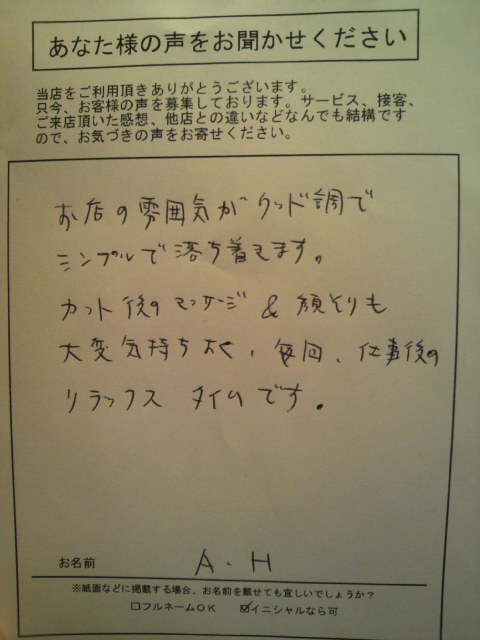 あなた様の声をお聞かせください
当店をご利用頂きありがとうございます。
只今、お客様の声を募集しております。サービス、接客、
ご来店頂いた感想、他店との違いなどなんでも結構です
ので、お気づきの声をお寄せください。
お店の雰囲気がウッド調で
シンプルで落ち着きます。
カット後のマッサージ & 顔そりも
大変気持ちよく、毎回、仕事後の
リラックス タイムです。
お名前 A.H
※紙面などに掲載する場合、お名前を載せても宜しいでしょうか?
□フルネームOK ☑イニシャルなら可